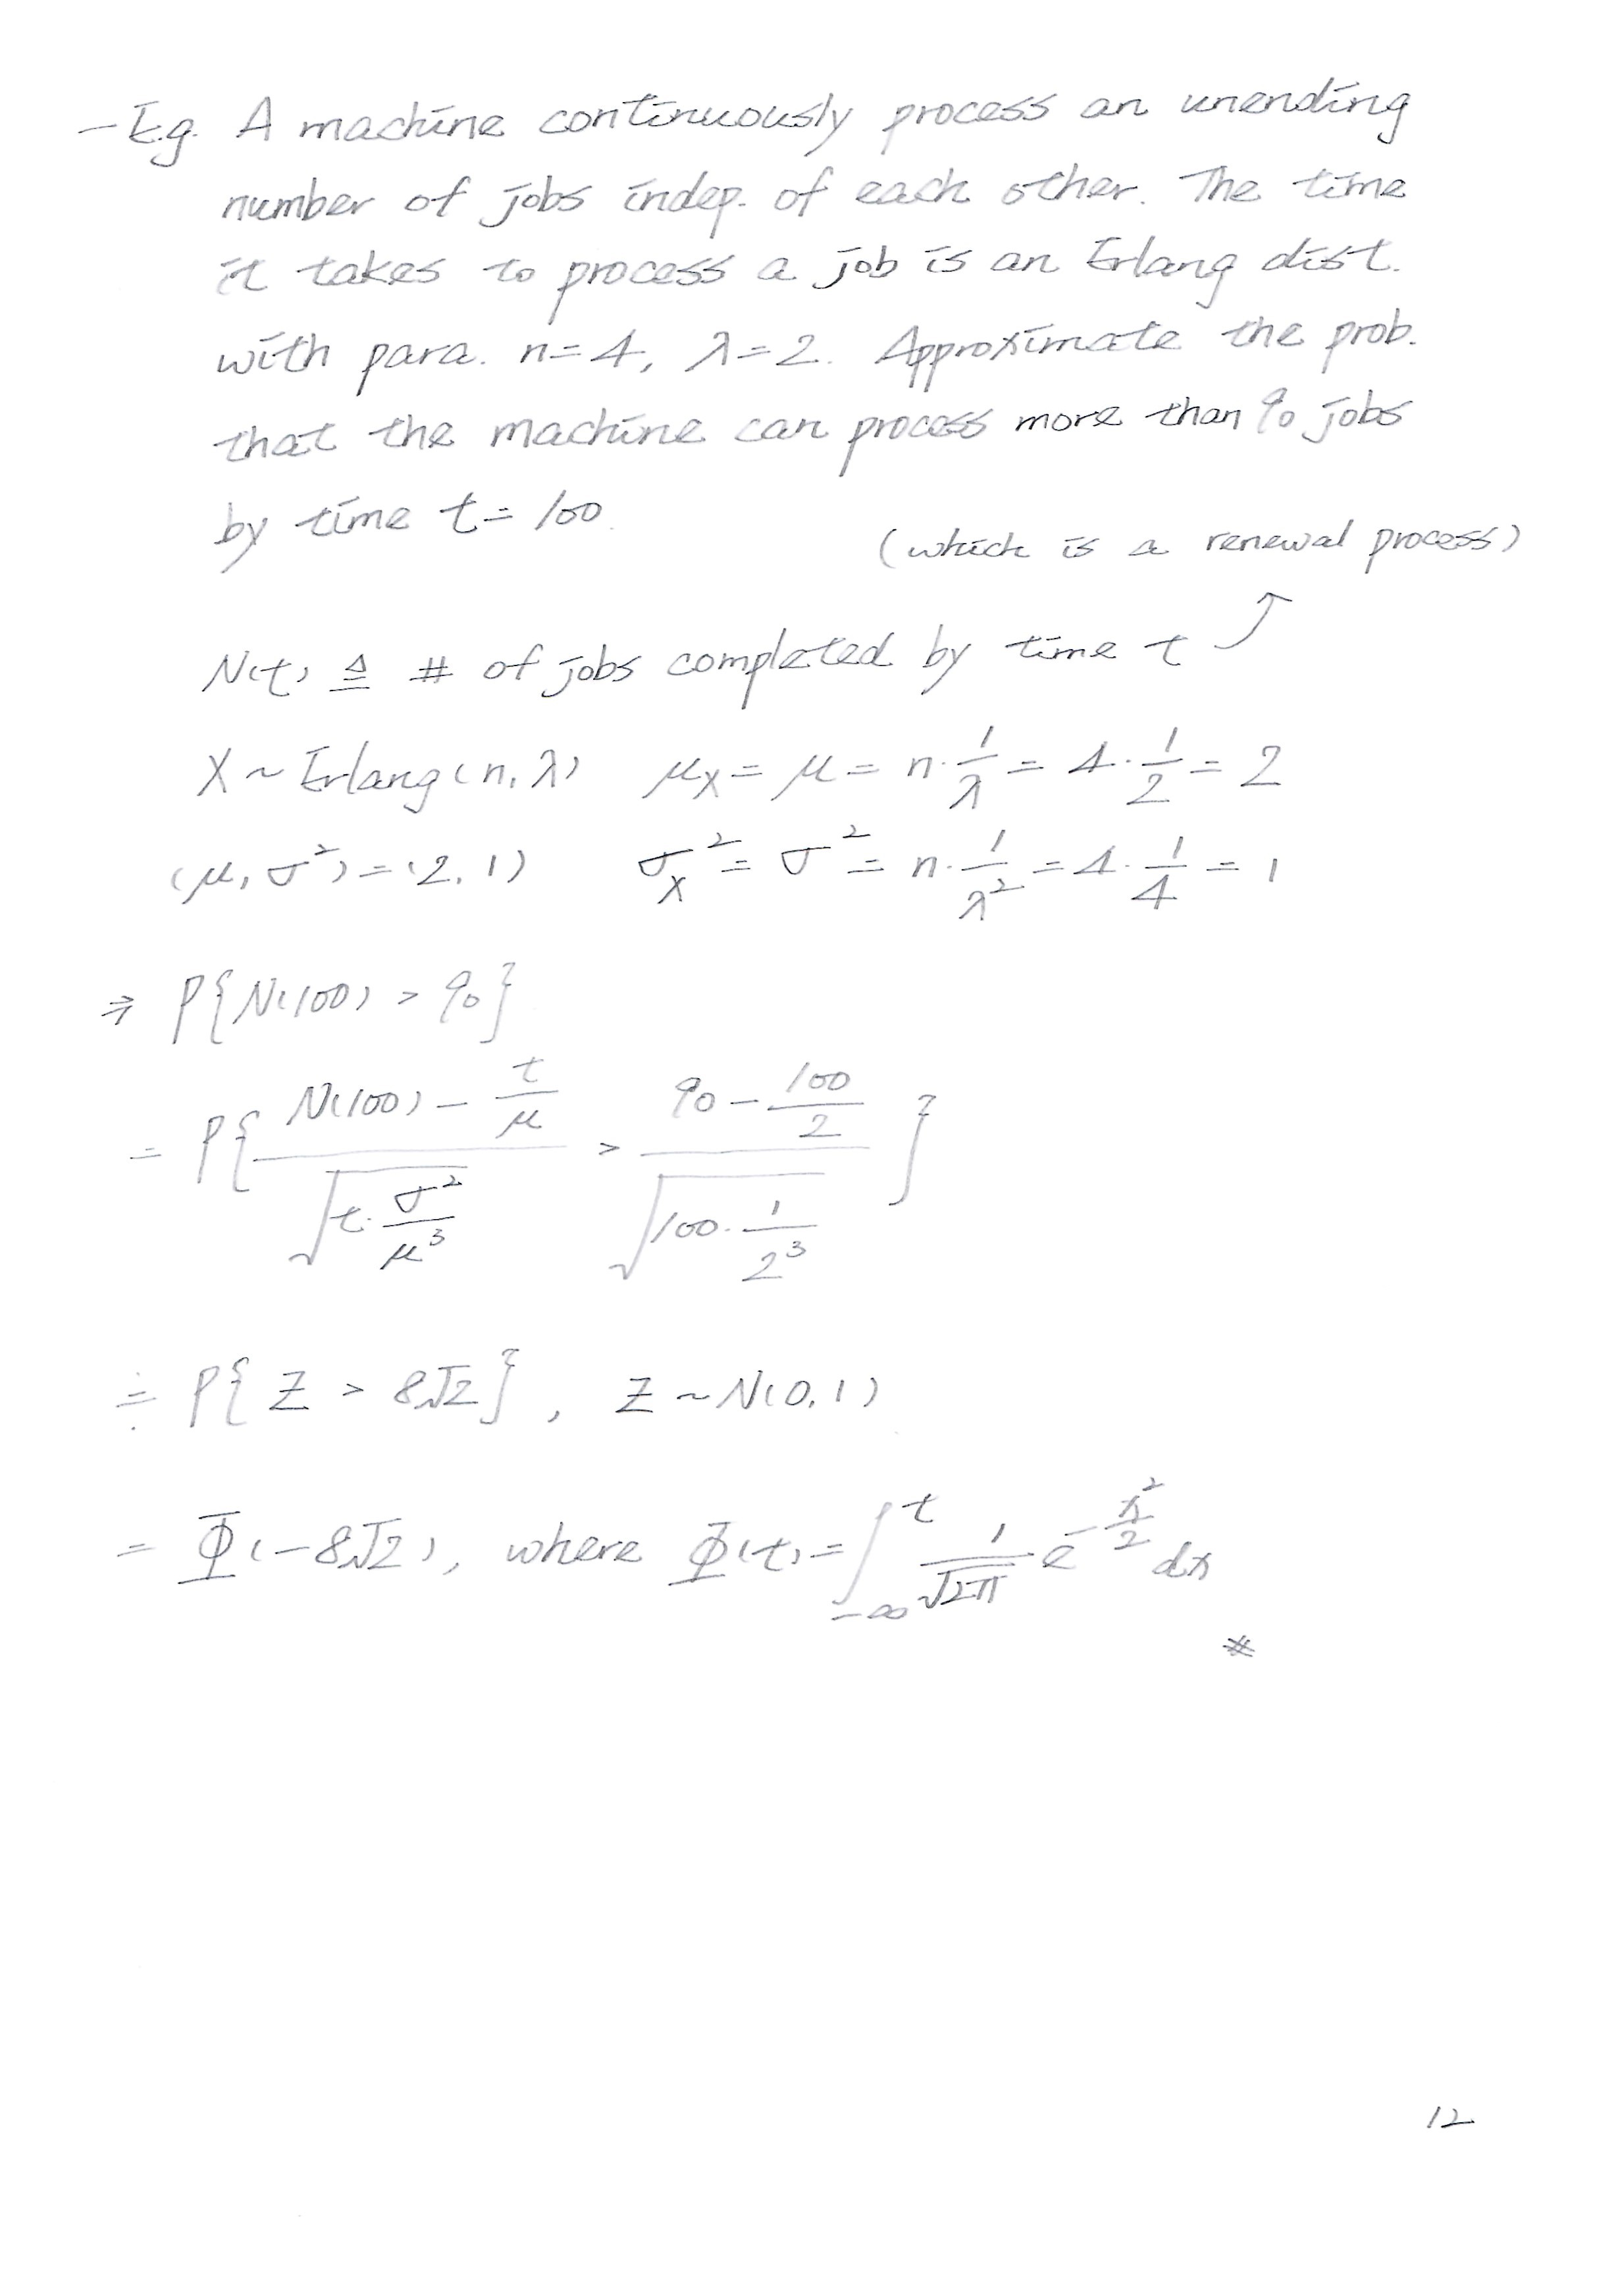 - E.g. A machine continuously process an unending
number of jobs indep. of each other. The time
it takes to process a job is an Erlang dist.
with para. n=4, λ=2. Approximate the prob.
that the machine can process more than 90 jobs
by time t=100.
(which is a renewal process)
N(t) ≜ # of jobs completed by time t ↗
X ~ Erlang(n, λ) μ_X = μ = n·1/λ = 4·1/2 = 2
(μ, σ²) = (2, 1) σ_X² = σ² = n·1/λ² = 4·1/4 = 1
⇒ P{N(100) > 90}
= P{(N(100) - t/μ)/√(t·σ²/μ³) > (90 - 100/2)/√(100·1/2³)}
≑ P{Z > 8√2}, Z ~ N(0, 1)
= Φ(-8√2), where Φ(t) = ∫_{-∞}^{t} 1/√(2π) e^{-x²/2} dx
#
12